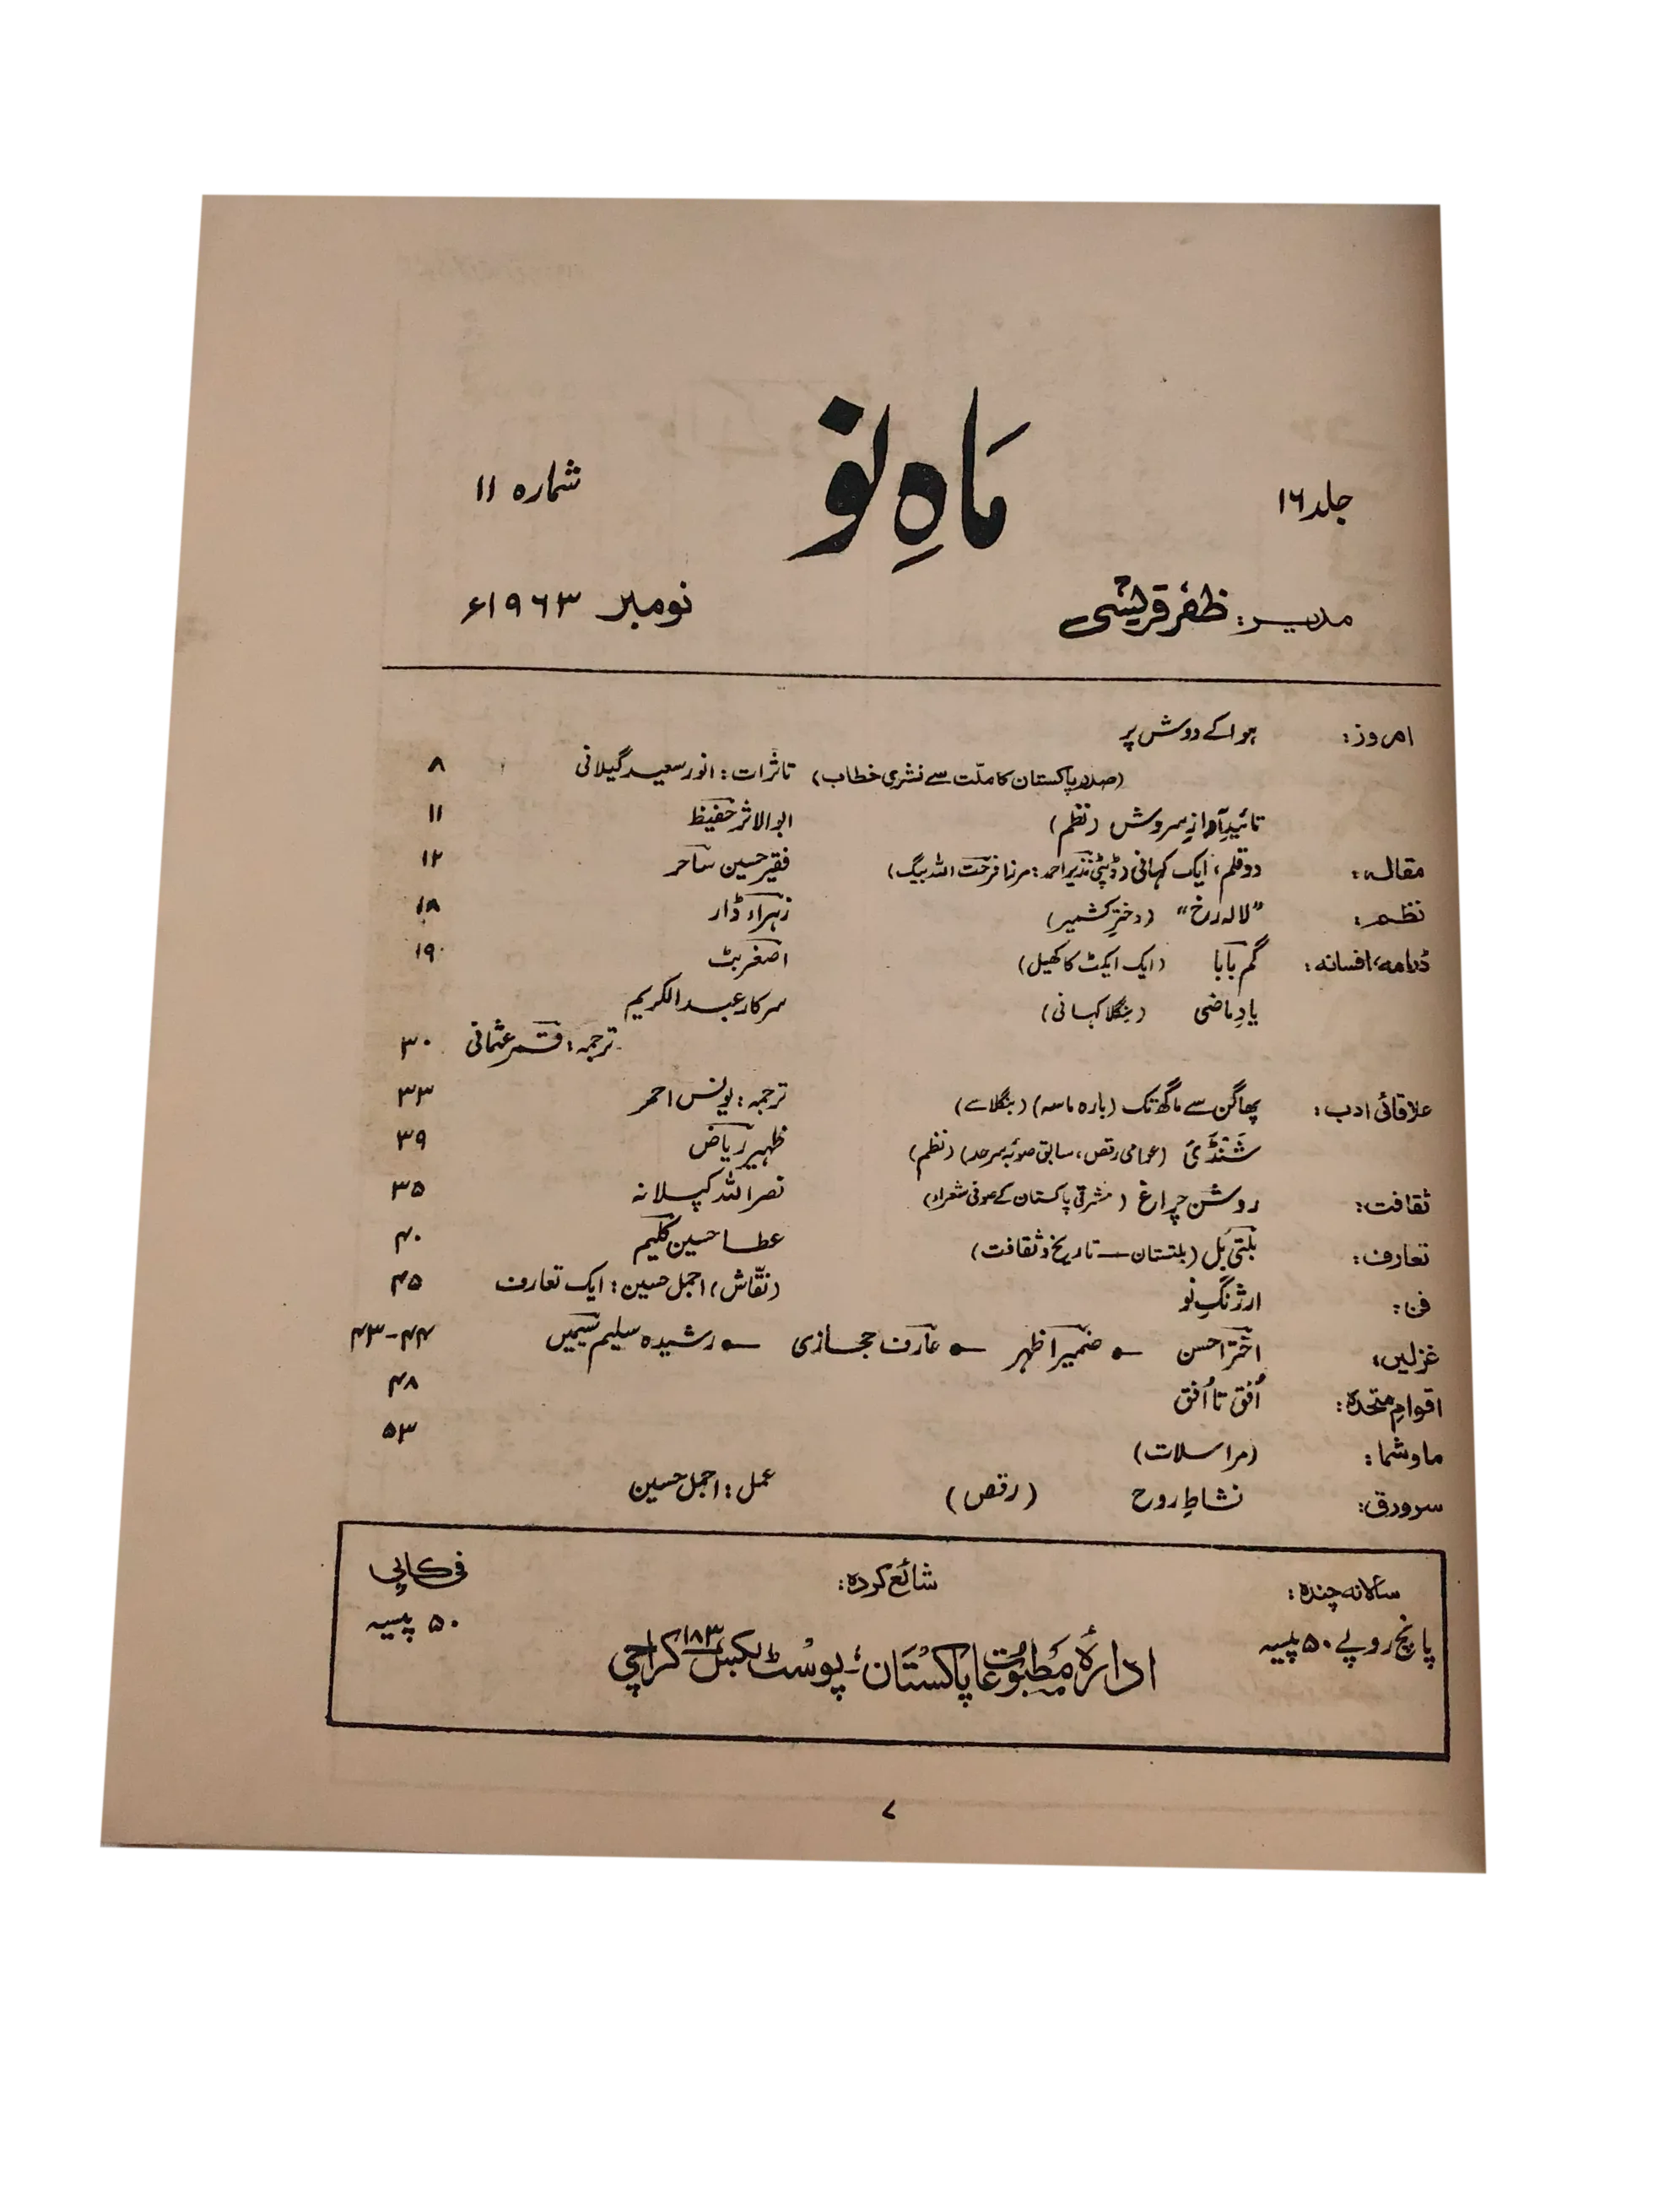 ماہِ نو
جلد ۱۶
شمارہ ۱۱
مدیر: ظفر قریشی
نومبر ۱۹۶۳ء
امروز: ہوا کے دوش پر
(صدر پاکستان کا ملّت سے نشری خطاب) تاثرات: انور سعید گیلانی ۸
تائیدِ آوازِ سروش (نظم) ابوالاثر حفیظ ۱۱
مقالہ: دو قلم، ایک کہانی (ڈپٹی نذیر احمد: مرزا فرحت اللہ بیگ) فقیر حسین ساحر ۱۲
نظم: "لالہ رخ" (دخترِ کشمیر) زہراء ڈار ۱۸
ڈرامہ، افسانہ: گم بابا (ایک ایکٹ کا کھیل) اصغر بٹ ۱۹
یادِ ماضی (بنگلا کہانی) سرکار عبدالکریم
ترجمہ: قمر عثمانی ۳۰
علاقائی ادب: پھاگن سے ماگھ تک (بارہ ماسہ) (بنگلا سے) ترجمہ: یونس احمر ۳۳
شَنْدَئ (عوامی رقص، سابق صوبہ سرحد) (نظم) ظہیر ریاض ۳۹
ثقافت: روشن چراغ (مشرقی پاکستان کے صوفی شعراء) نصر اللہ کپلانہ ۳۵
تعارف: بلتی یُل (بلتستان — تاریخ و ثقافت) عطا حسین کلیم ۴۰
فن: ارژنگِ نو (نقّاش) اجمل حسین: ایک تعارف ۴۵
غزلیں: اختر احسن • ضمیر اظہر • عارف حجازی • رشیدہ سلیم سیمیں ۴۳-۴۴
اقوامِ متحدہ: اُفق تا اُفق ۴۸
ما و شما: (مراسلات) ۵۳
سرورق: نشاطِ روح (رقص) عمل: اجمل حسین
سالانہ چندہ: شائع کردہ: فی کاپی
پانچ روپے ۵۰ پیسہ ادارۂ مطبوعات پاکستان، پوسٹ بکس ۱۸۳ کراچی ۵۰ پیسہ
۷